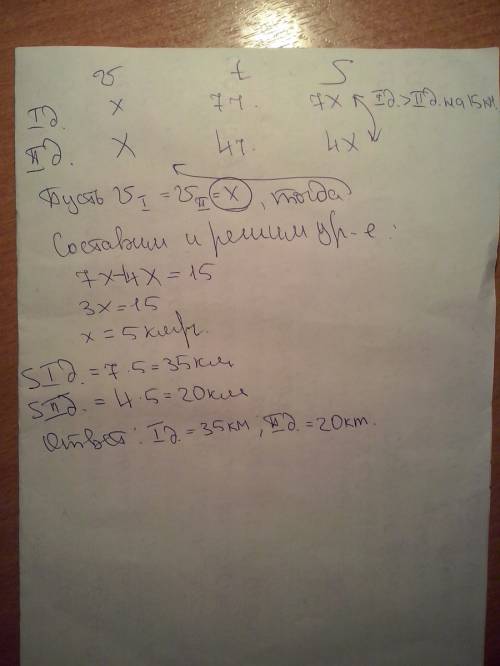 v t S
I д. x 7 ч. 7x I д. > II д. на 15 км.
II д. x 4 ч. 4x
Пусть v I = v II = x, тогда
Составим и решим ур-е:
7x-4x = 15
3x = 15
x = 5 км/ч.
S I д. = 7·5 = 35 км
S II д. = 4·5 = 20 км
Ответ: I д. = 35 км; II д. = 20 км.